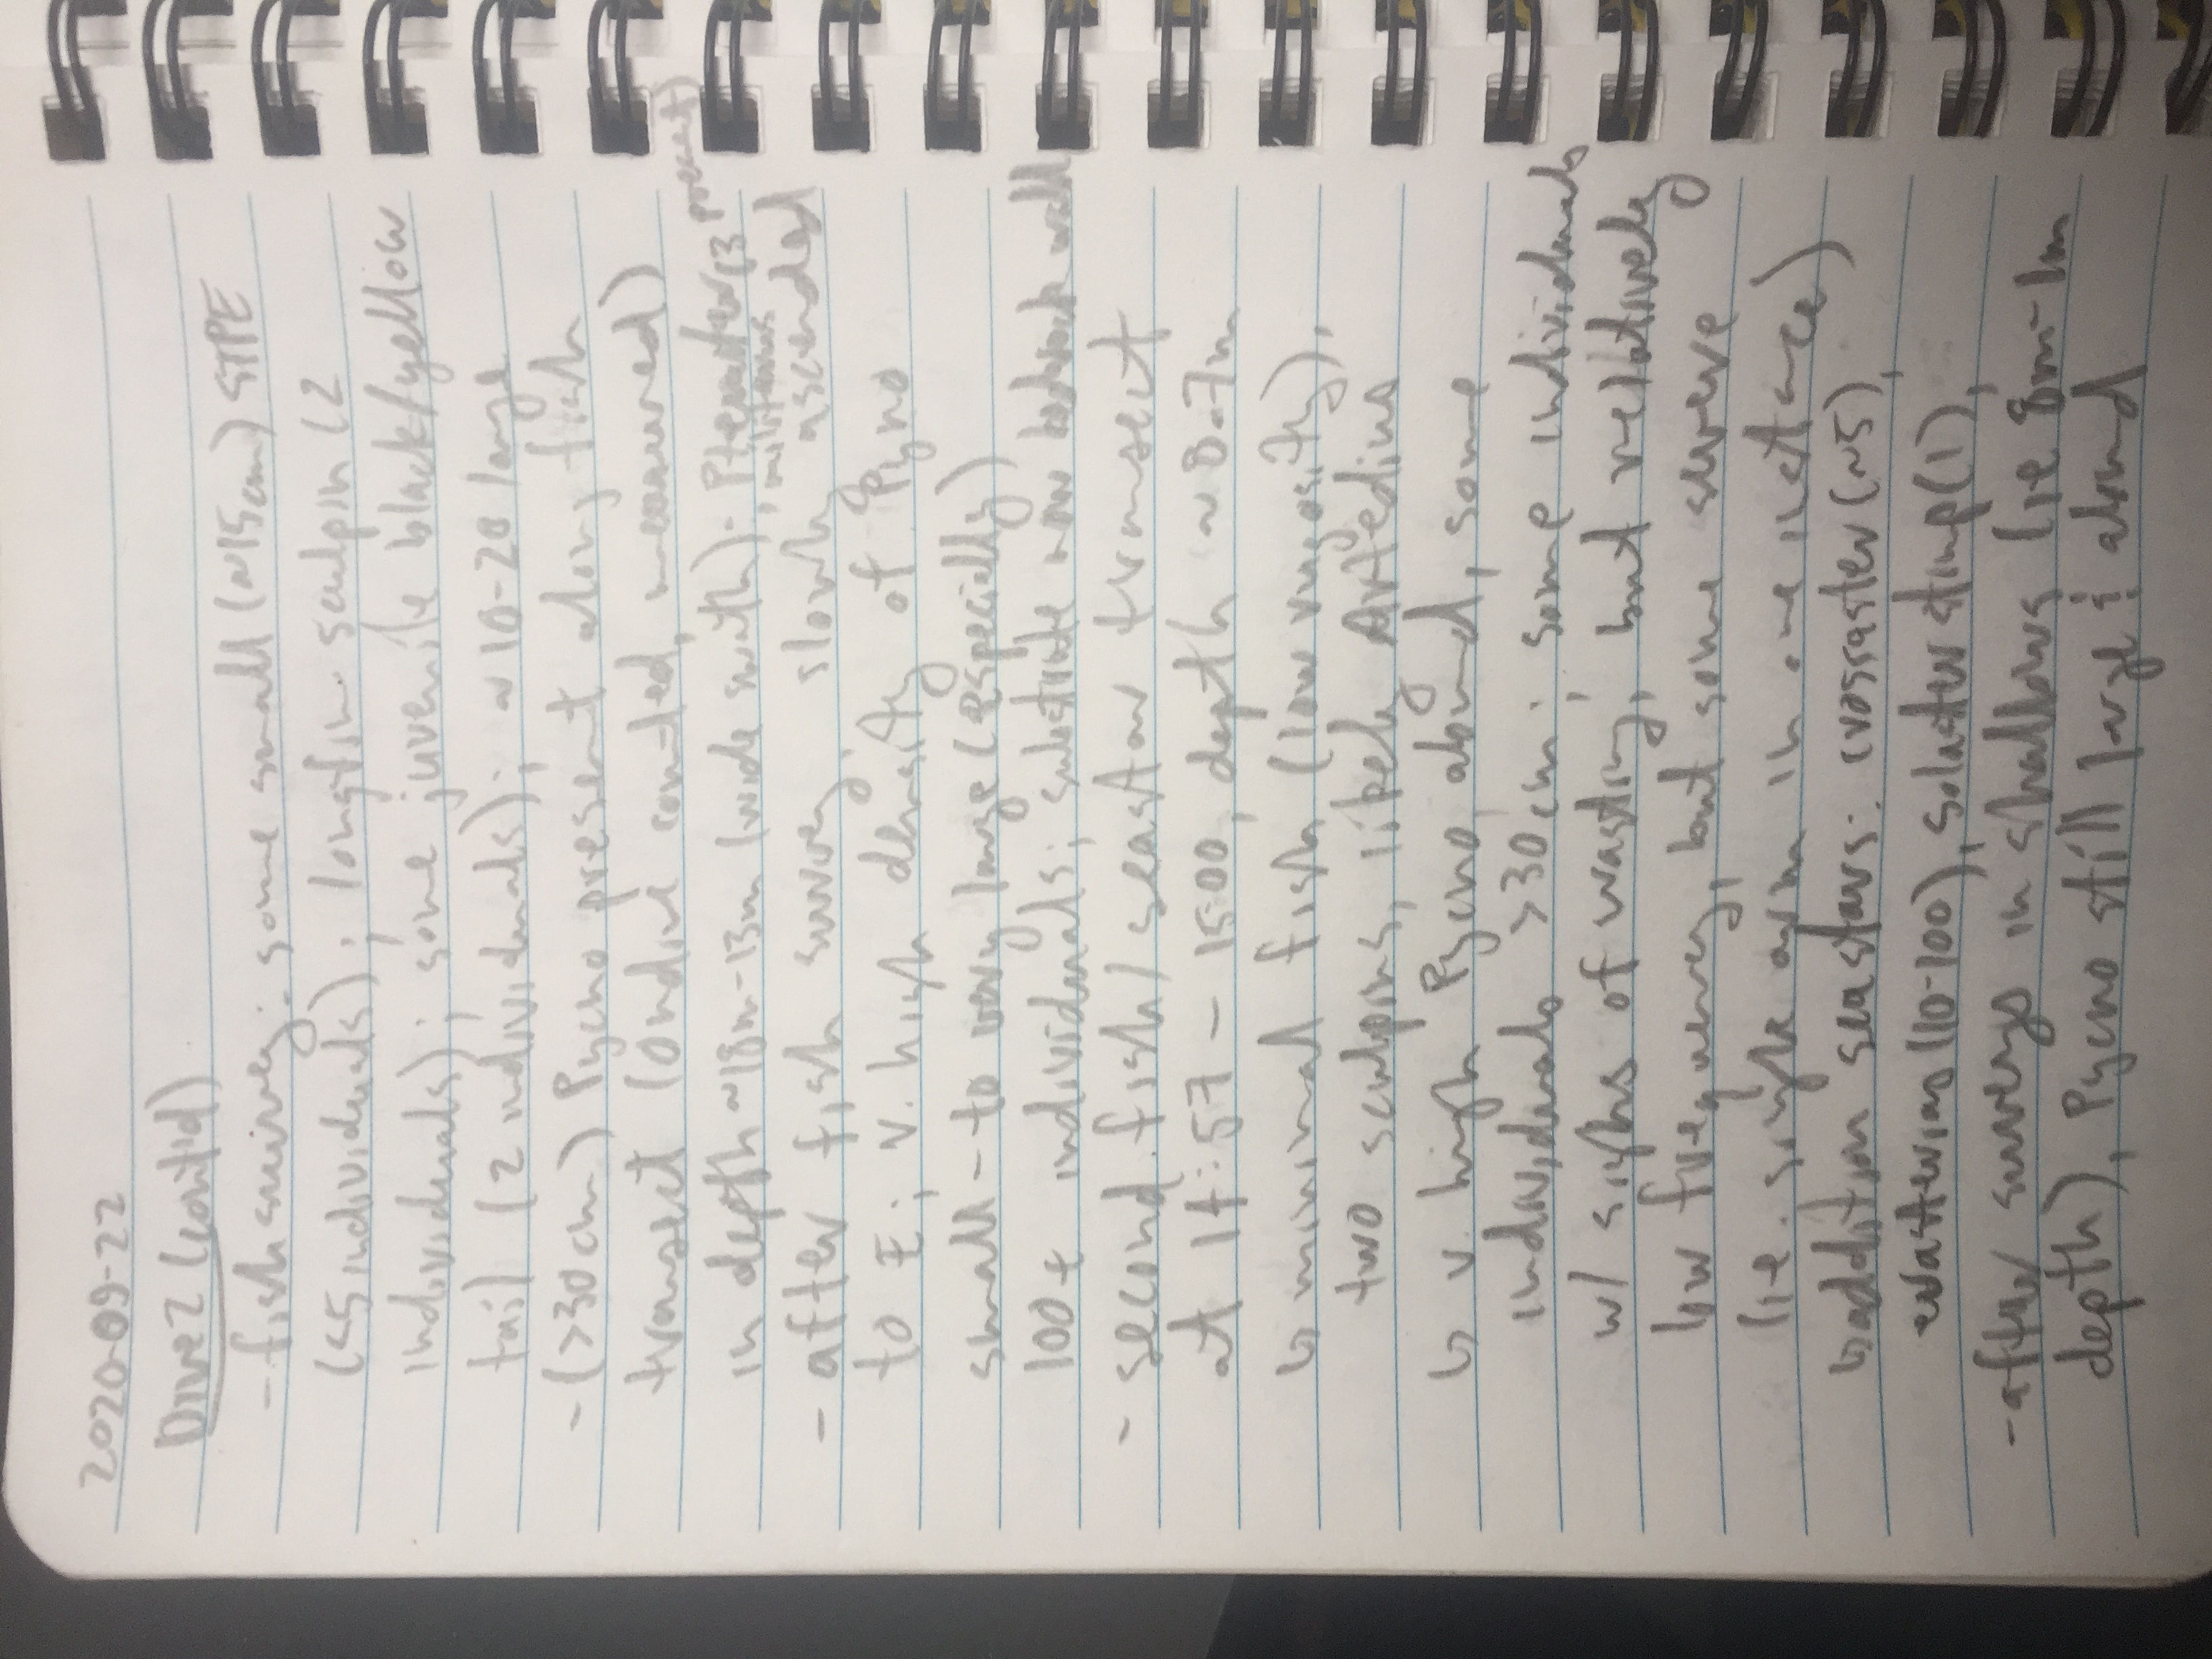 2020-09-22
Dive 2 (cont'd)
- fish survey: some small (~15cm) STPE
(<5 individuals); longfin sculpin (2
individuals); some juvenile black/yellow
tail (2 individuals); ~10-20 large
- (>30cm) Pycno present along fish
transect (Ondine counted, measured)
in depth ~18m-13m (wide swath); Pteraster (3 present)
militarus
- after fish survey, slowly ascended
to E; v. high density of Pyno
small - to very large (especially)
100+ individuals; substrate now bedrock wall
- second fish/seastar transect
at 14:57 - 15:00, depth ~8.7m
↳ minimal fish (low rugosity),
two sculpins, likely Artedius
↳ v. high Pycno abund, some
individuals >30cm; some individuals
w/ signs of wasting, but relatively
low frequency, but some severe
(i.e. single arm in one instance)
↳ addition seastars: crossaster (~5),
evasterias (10-100), solaster stimp (1),
- after surveys in shallows (ie 8m-1m
depth), Pycno still large & abund